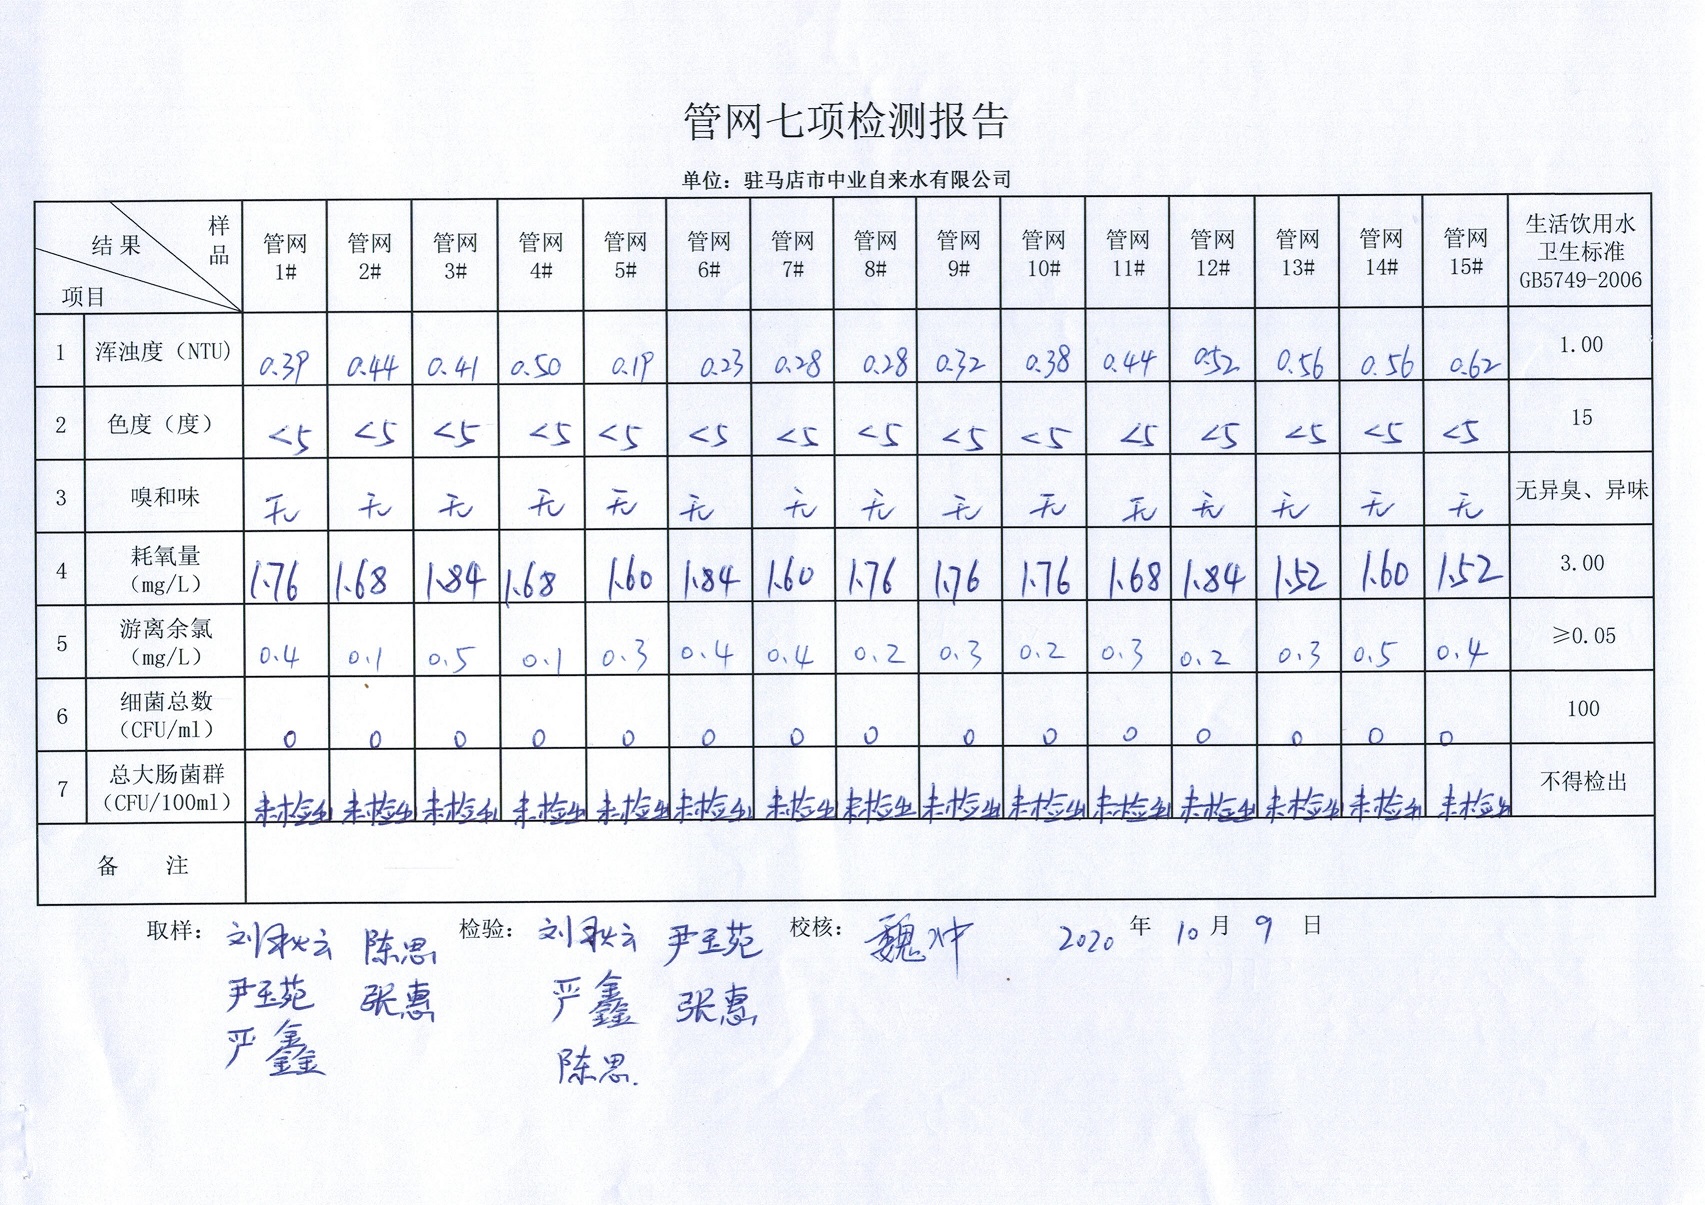 管网七项检测报告
单位：驻马店市中业自来水有限公司
结果 样品 项目 管网1# 管网2# 管网3# 管网4# 管网5# 管网6# 管网7# 管网8# 管网9# 管网10# 管网11# 管网12# 管网13# 管网14# 管网15# 生活饮用水卫生标准GB5749-2006
1 浑浊度（NTU) 0.39 0.44 0.41 0.50 0.19 0.23 0.28 0.28 0.32 0.38 0.44 0.52 0.56 0.56 0.62 1.00
2 色度（度） <5 <5 <5 <5 <5 <5 <5 <5 <5 <5 <5 <5 <5 <5 <5 15
3 嗅和味 无 无 无 无 无 无 无 无 无 无 无 无 无 无 无 无异臭、异味
4 耗氧量（mg/L） 1.76 1.68 1.84 1.68 1.60 1.84 1.60 1.76 1.76 1.76 1.68 1.84 1.52 1.60 1.52 3.00
5 游离余氯（mg/L） 0.4 0.1 0.5 0.1 0.3 0.4 0.4 0.2 0.3 0.2 0.3 0.2 0.3 0.5 0.4 ≥0.05
6 细菌总数（CFU/ml） 0 0 0 0 0 0 0 0 0 0 0 0 0 0 0 100
7 总大肠菌群（CFU/100ml） 未检出 未检出 未检出 未检出 未检出 未检出 未检出 未检出 未检出 未检出 未检出 未检出 未检出 未检出 未检出 不得检出
备 注
取样： 刘秋云 陈思 检验： 刘秋云 尹玉苑 校核： 魏冲 2020 年 10 月 9 日
尹玉苑 张惠 严鑫 张惠
严鑫 陈思.